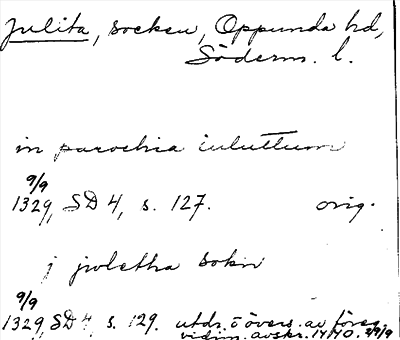 Julita, socken, Oppunda hd,
Söderm. l.
in parochia iuluttum
9/9
1329, SD 4, s. 127. orig.
j juletha sokn
9/9
1329, SD 4, s. 129. utdr. o övers. av föreg.
vidim. avskr. 1440. 2/9/9